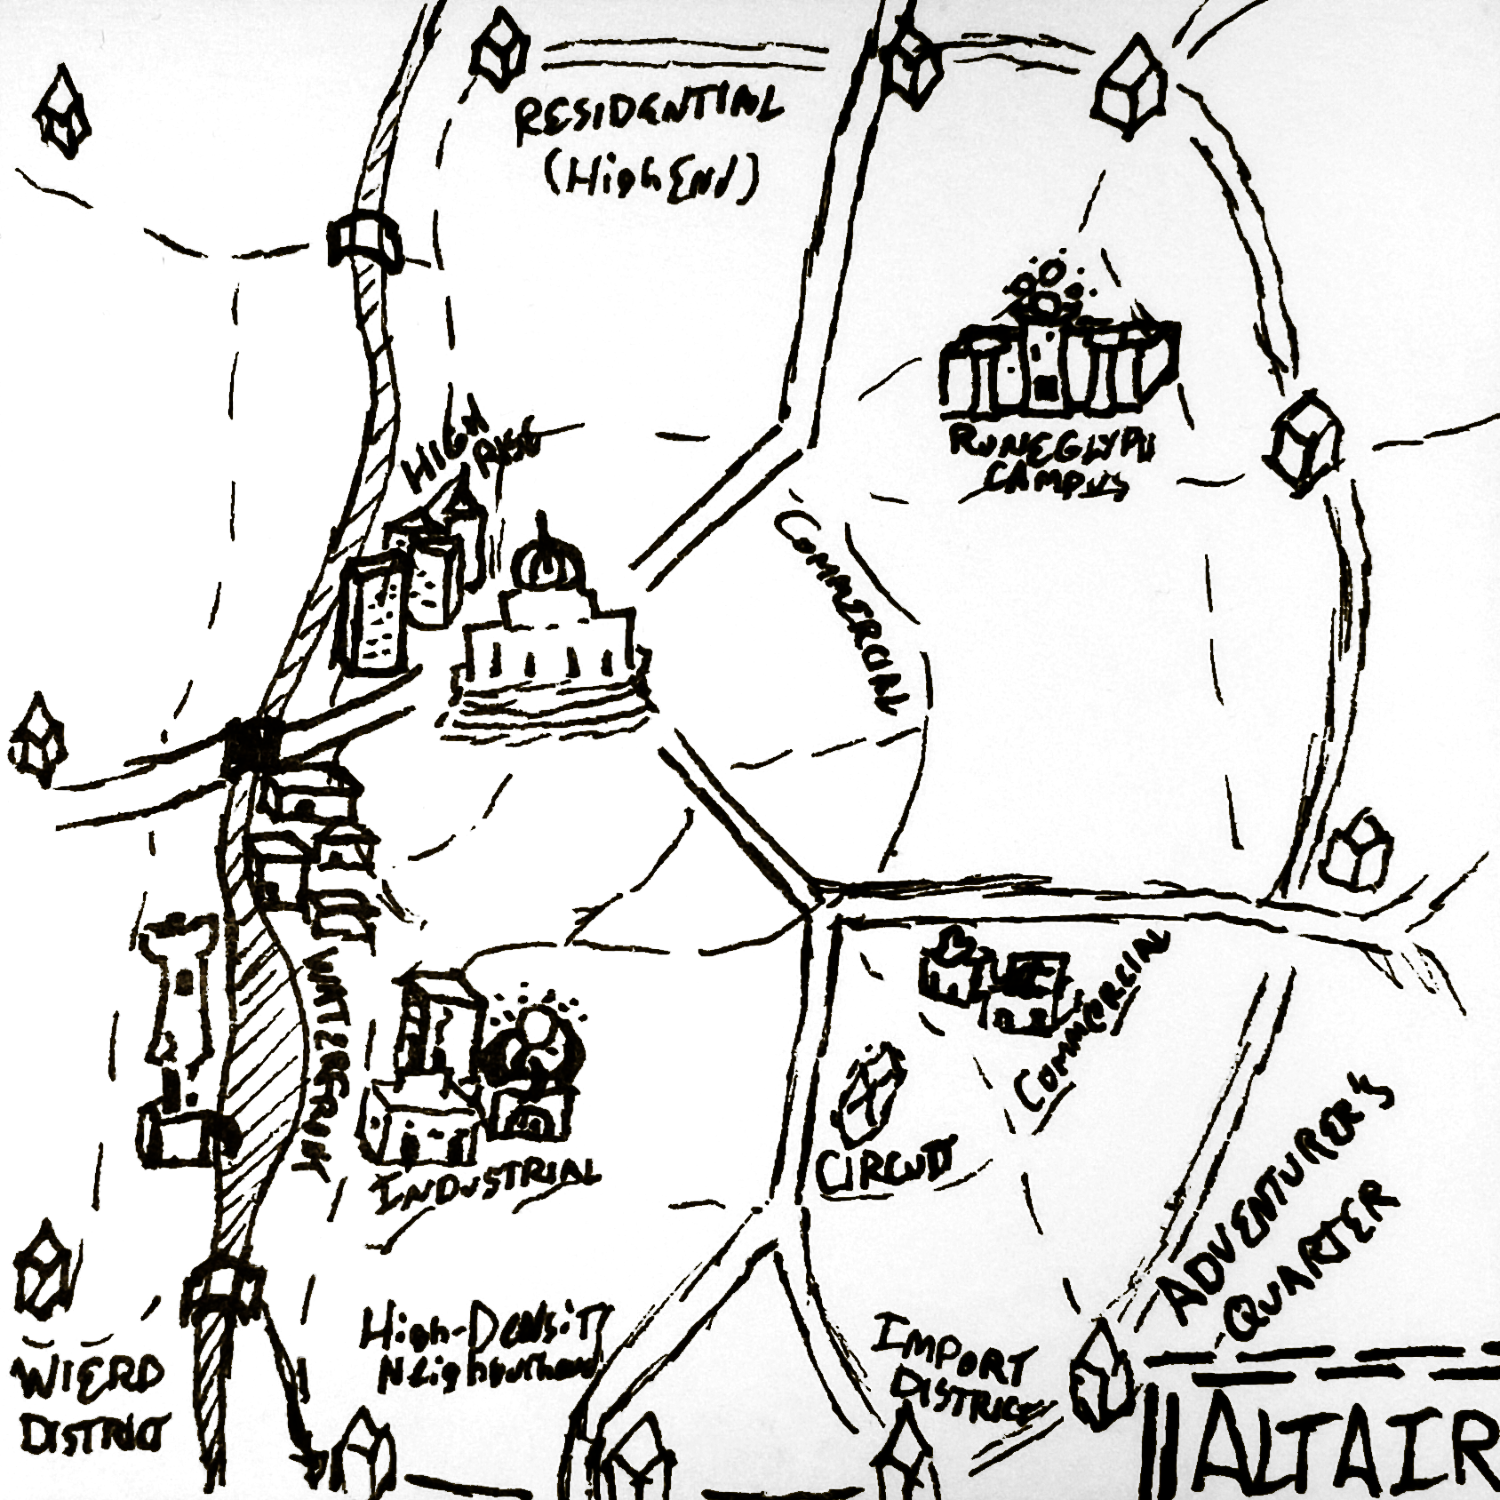 RESIDENTIAL
(High End)
HIGH
RISE
RUNEGLYPH
CAMPUS
COMMERCIAL
WATERFRONT
COMMERCIAL
INDUSTRIAL
CIRCUIT
ADVENTURER'S
QUARTER
High-Density
Neighbourhood
IMPORT
DISTRICT
WIERD
DISTRICT
ALTAIR